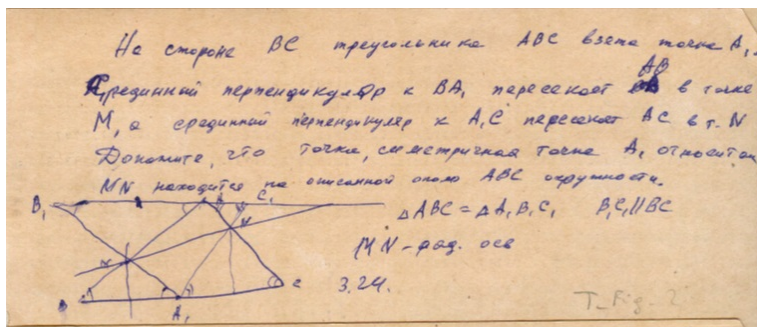 На стороне BC треугольника ABC взята точка A₁.
Срединный перпендикуляр к BA₁ пересекает AB в точке
M, а срединный перпендикуляр к A₁C пересекает AC в т. N
Докажите, что точка, симетричная точке A₁ относител
MN находится на описанной около ABC окружности.
B₁ C₁
△ABC = △A₁B₁C₁ B₁C₁ ∥ BC
MN - рад. ось
3.24.
B A₁ C
T_Fig. 2